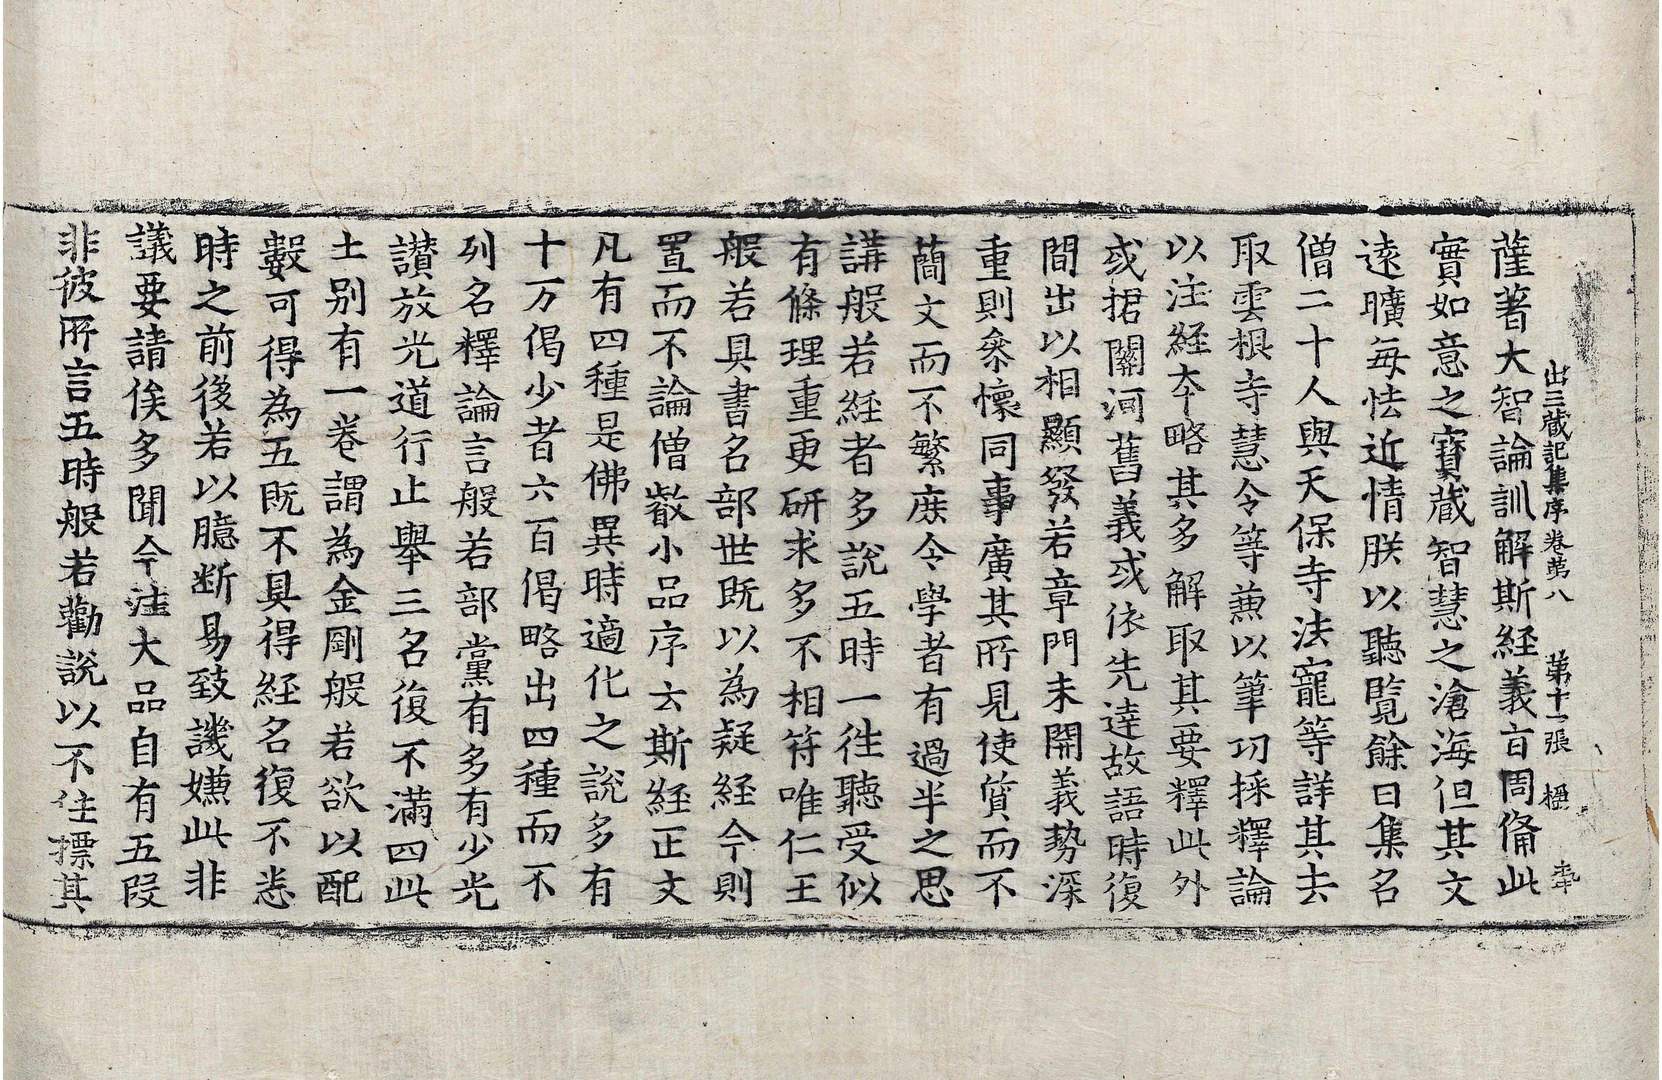 出三藏記集序卷第八 第十一張 楹
薩著大智論訓解斯経義旨周俻此
實如意之寶藏智慧之滄海但其文
遠曠每怯近情朕以聽覧餘日集名
僧二十人與天保寺法寵等詳其去
取雲根寺慧令等兼以筆功採釋論
以注経夲略其多解取其要釋此外
或捃關河舊義或依先達故語時復
間出以相顯發若章門未開義勢深
重則叅懷同事廣其所見使質而不
蕳文而不繁庶令學者有過半之思
講般若経者多說五時一徃聽受似
有條理重更研求多不相符唯仁王
般若具書名部世既以為疑経今則
置而不論僧叡小品序云斯経正文
凡有四種是佛異時適化之說多有
十万偈少者六百偈略出四種而不
列名釋論言般若部黨有多有少光
讃放光道行止舉三名復不滿四此
土别有一卷謂為金剛般若欲以配
數可得為五既不具得経名復不悉
時之前後若以臆断易致譏嫌此非
義要請俟多聞今注大品自有五段
非彼所言五時般若勸說以不住標其